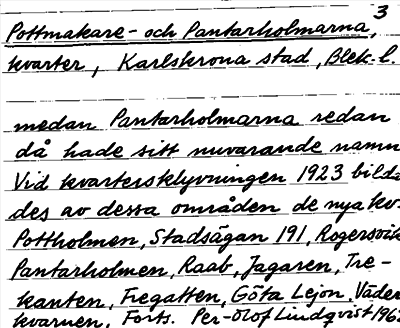 3
Pottmakare- och Pantarholmarna,
kvarter, Karlskrona stad, Blek. l.
medan Pantarholmarna redan
då hade sitt nuvarande namn
Vid kvartersklyvningen 1923 bilda
des av dessa områden de nya kv.
Pottholmen, Stadsägan 191, Rogersvik
Pantarholmen, Raab, Jagaren, Tre-
kanten, Fregatten, Göta Lejon, Väder
kvarnen. Forts. Per-Olof Lindqvist 196